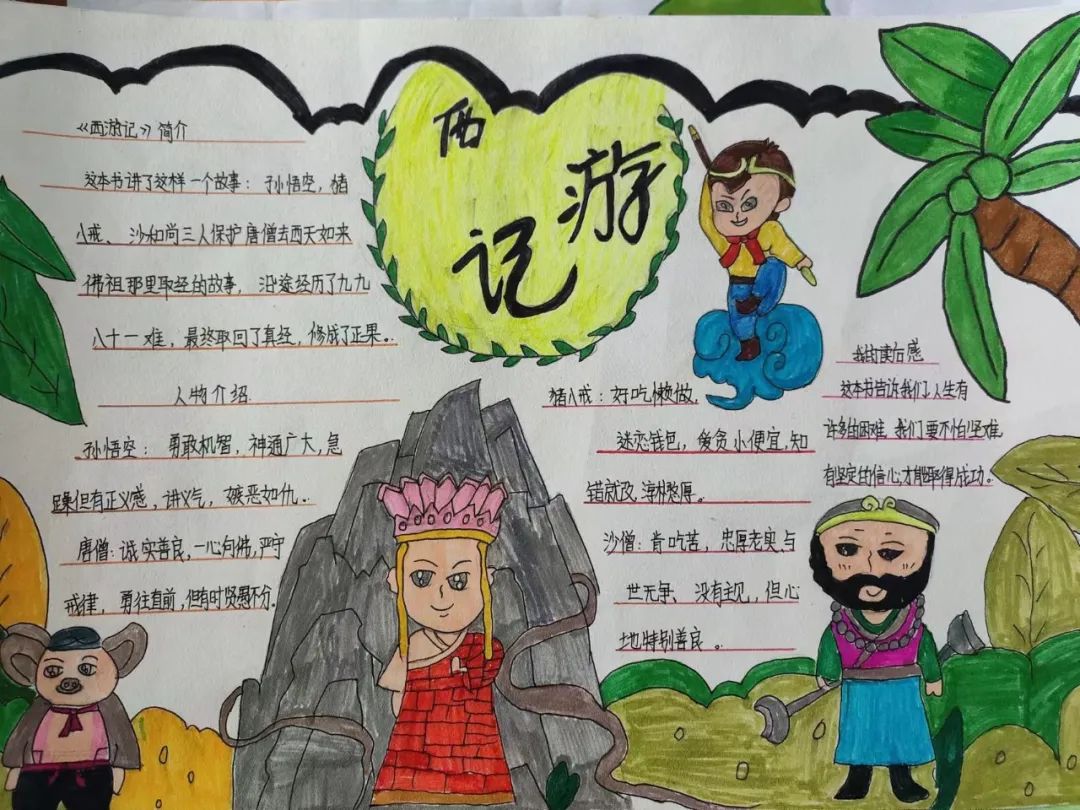 西游记
《西游记》简介
这本书讲了这样一个故事：孙悟空，猪
八戒、沙和尚三人保护唐僧去西天如来
佛祖那里取经的故事，沿途经历了九九
八十一难，最终取回了真经，修成了正果。
人物介绍
孙悟空：勇敢机智，神通广大，急
躁但有正义感，讲义气，嫉恶如仇。
唐僧：诚实善良，一心向佛，严守
戒律，勇往直前，但有时贤愚不分。
猪八戒：好吃懒做，
迷恋钱包，爱贪小便宜，知
错就改，憨厚。
沙僧：肯吃苦，忠厚老实、与
世无争、没有主见，但心
地特别善良。
我的读后感
这本书告诉我们人生有
许多的困难，我们要不怕坚难
有坚定的信心，才能取得成功。